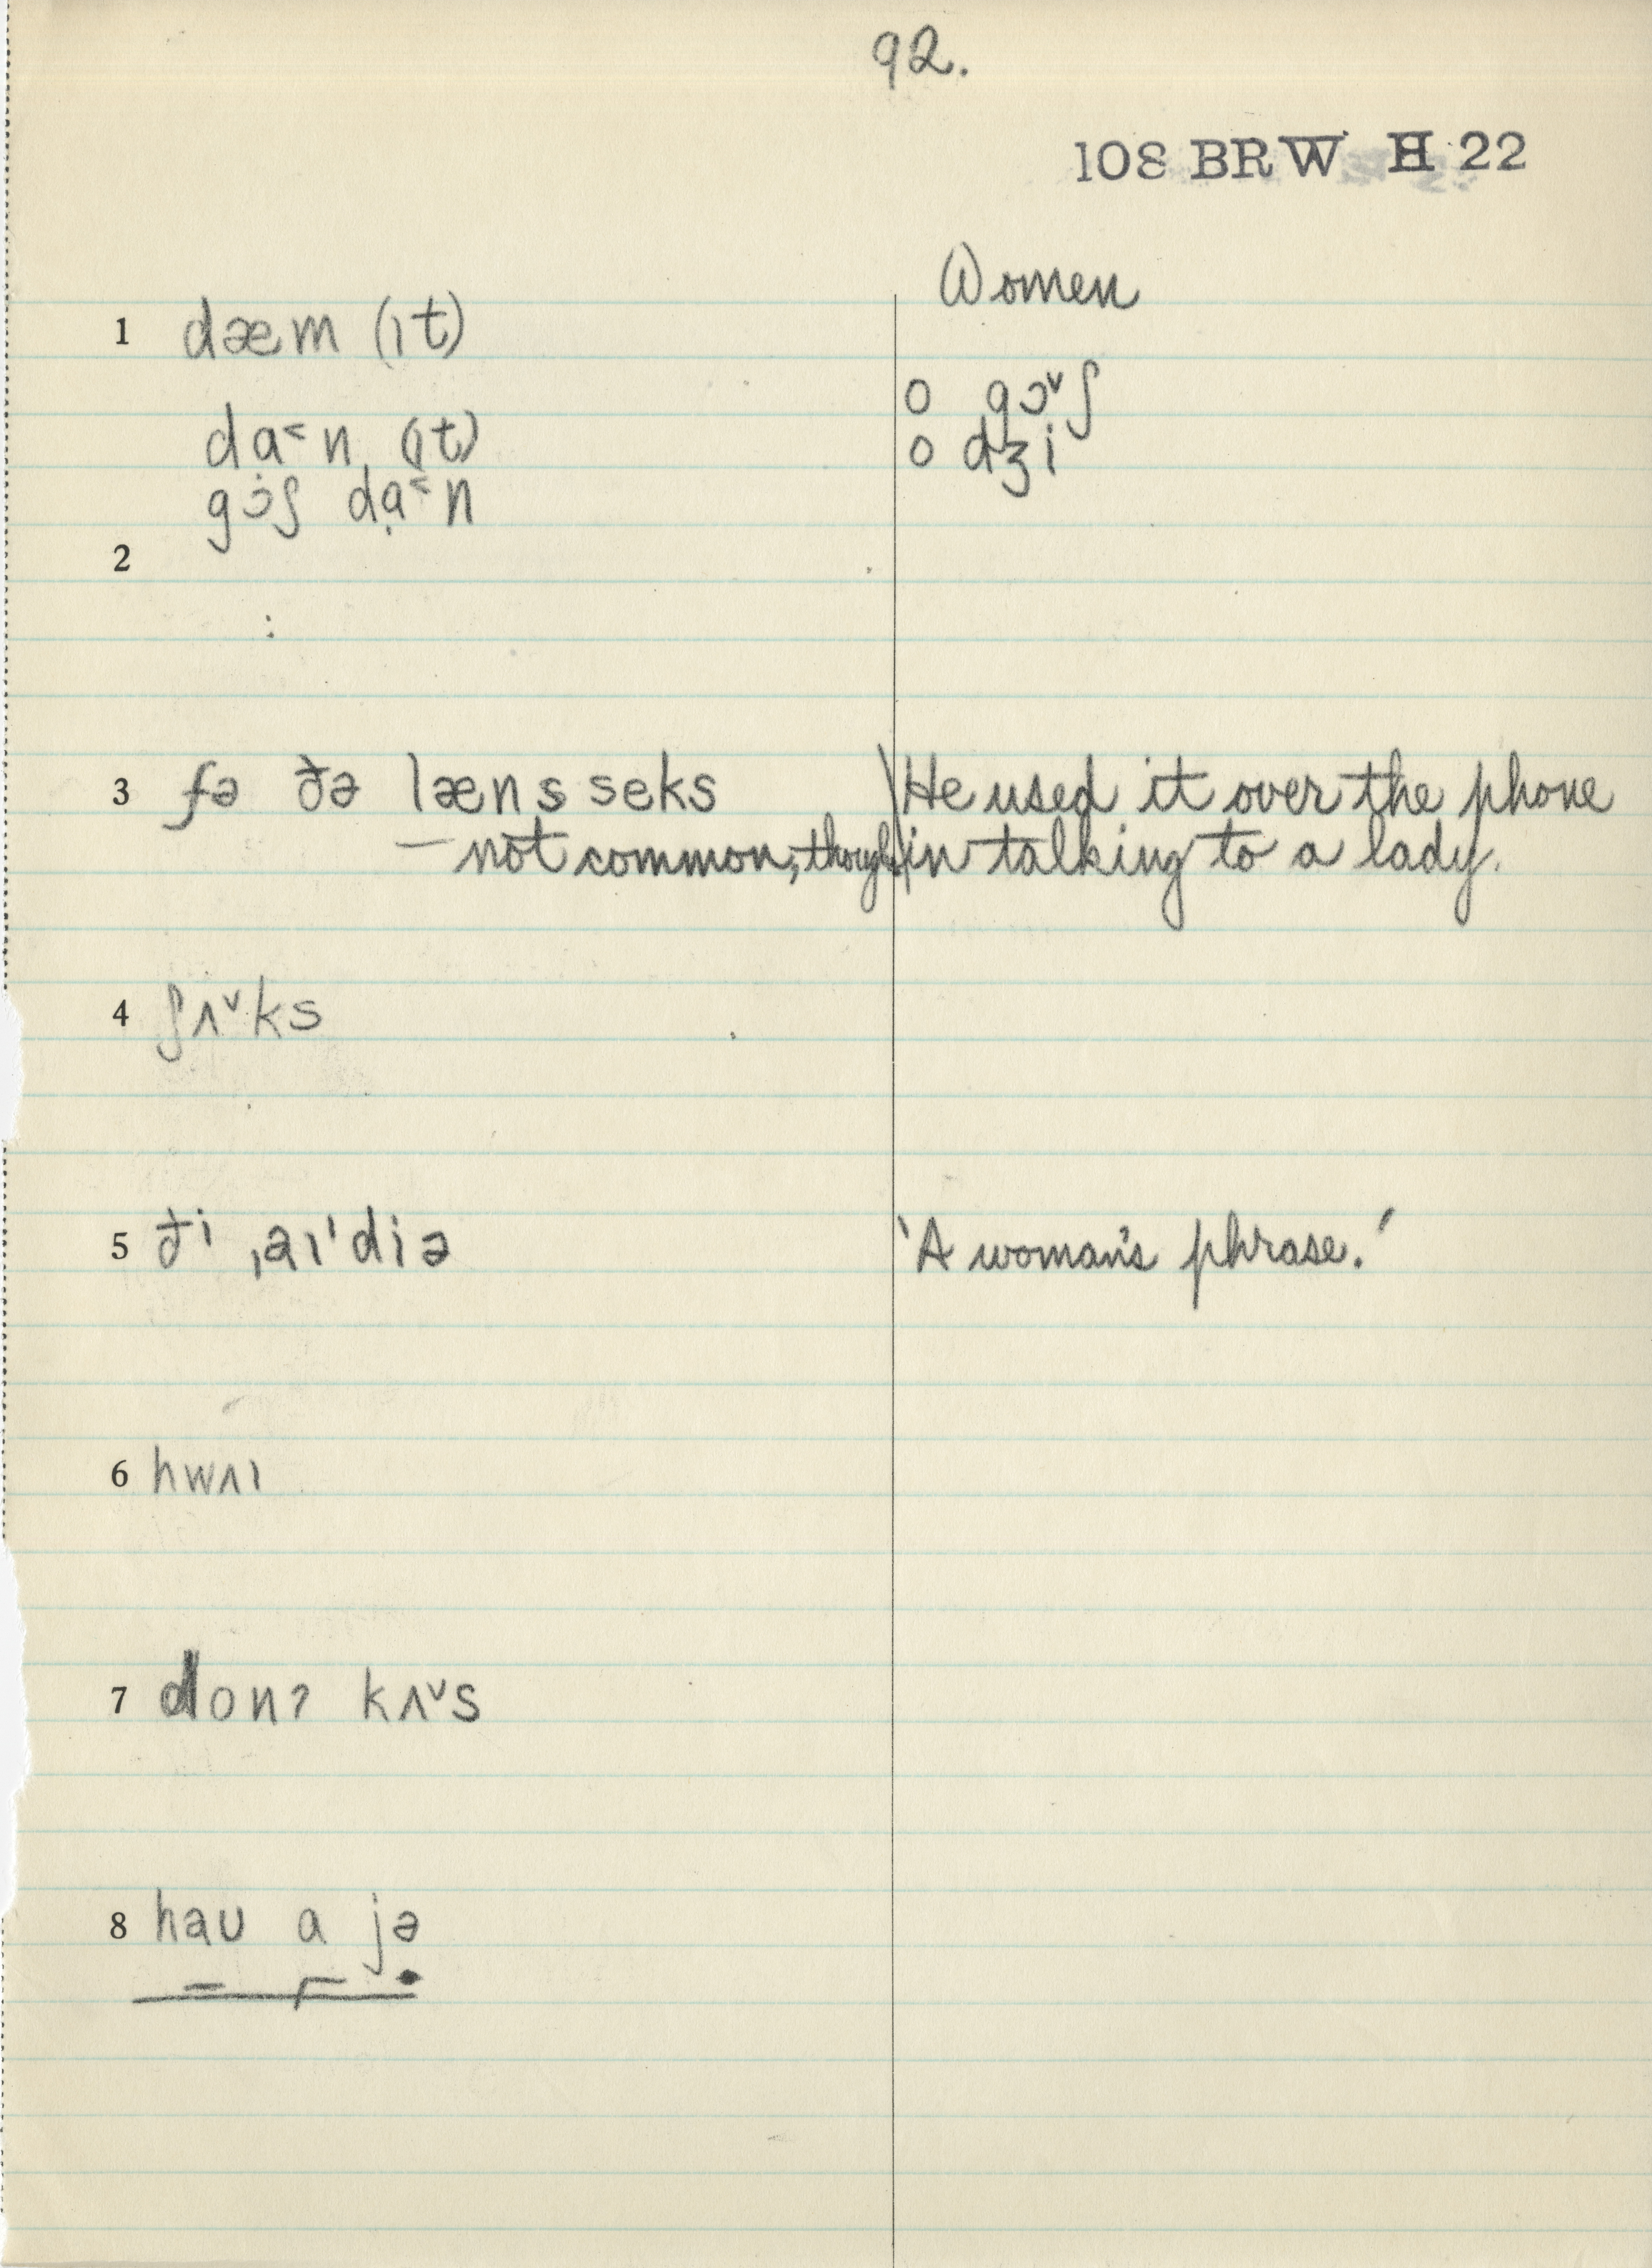 92.
108 BRW H 22
Women
1 dæm (ɪt)
o gɔ˅ʃ
da˂n (ɪt)
o dʒi
gɔ̇ʃ dạ˂n
2
:
3 fə ðə læns seks
He used it over the phone
— not common, though
in talking to a lady.
4 ʃʌ˅ks
5 ði ˌaɪˈdiə
'A woman's phrase.'
6 hwʌɪ
7 donʔ kʌ˅s
8 haʊ a jə